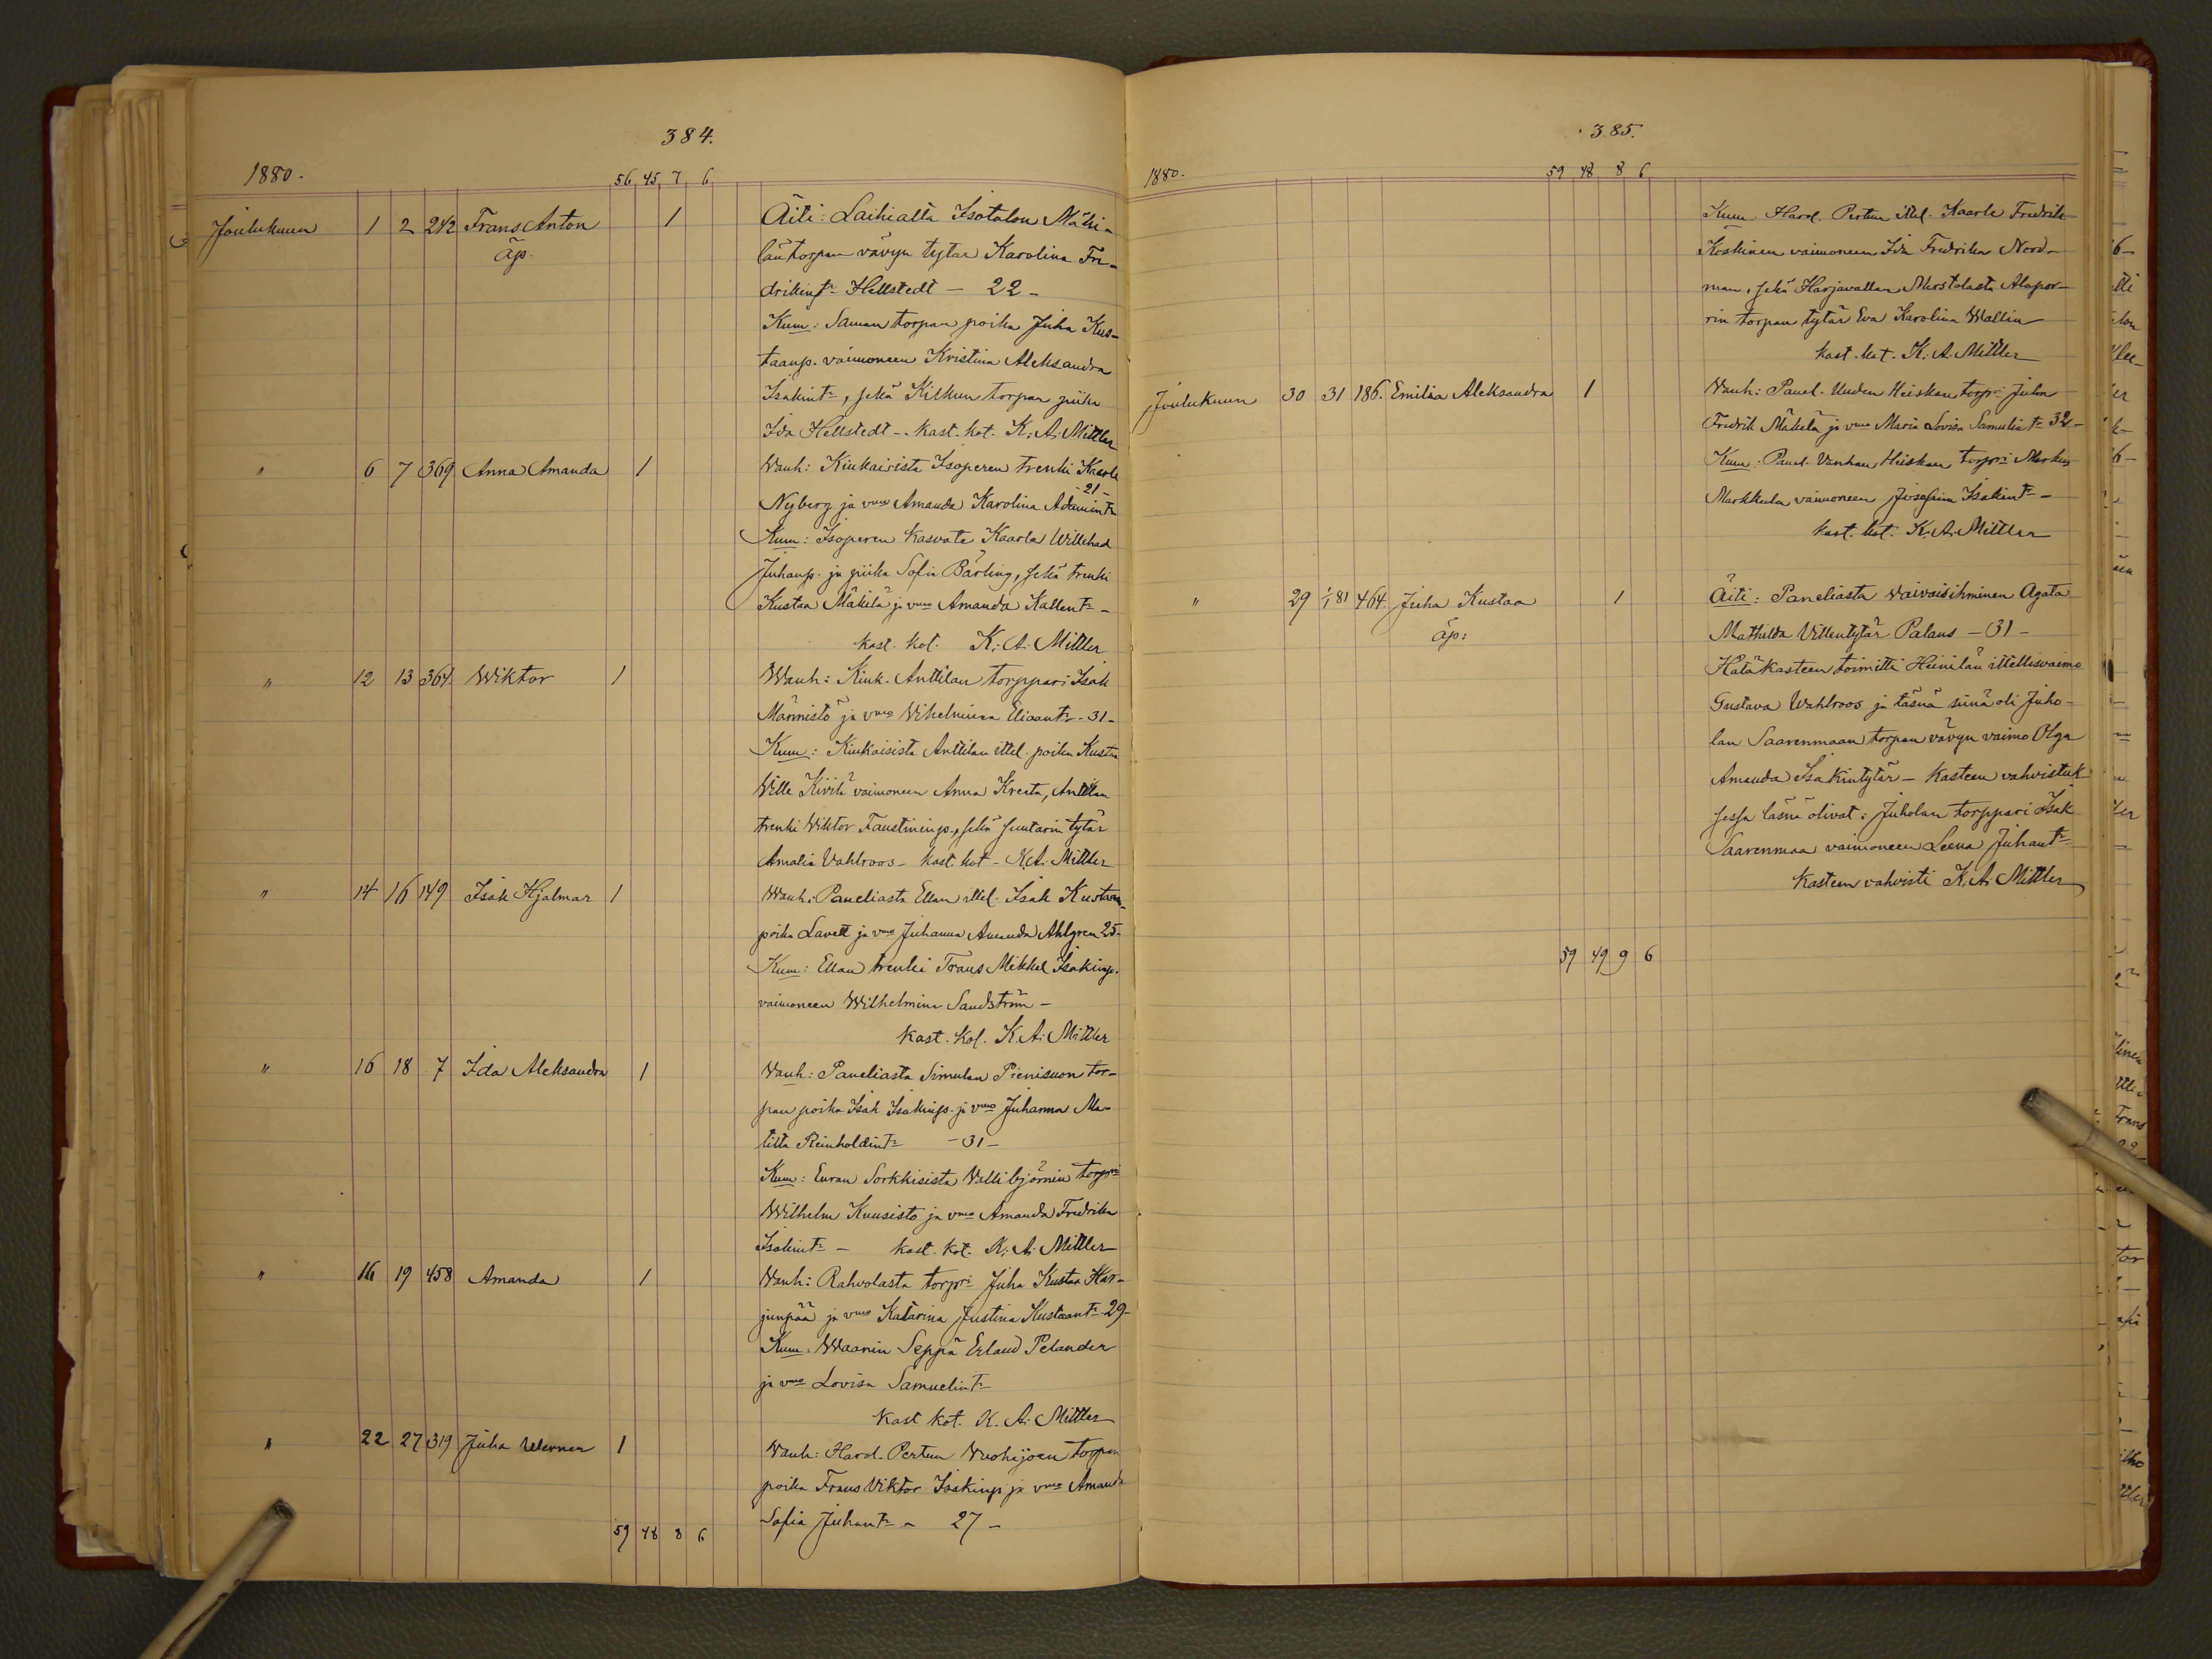 384.
1880. 56 45 7 6
Joulukuun 1 2 242 Frans Anton 1 Äiti: Laihialta Isotalon Mäki-
äp. län torpan vävyn tytär Karolina Fre-
drikintr Hellstedt — 22 —
Kum: Saman torpan poika Juha Kus-
taanp. vaimoneen Kristina Aleksandra
Isakintr, sekä Kiskun torpan piika
Ida Hellstedt — Kast. kot. K. A. Mittler
" 6 7 369 Anna Amanda 1 Vanh: Kiukaisista Isoperen trenki Kaarle
- 21 -
Nyberg ja vmo Amanda Karolina Adamintr
Kum: Isoperen kasvate Kaarle Willehad
Juhanp. ja piika Sofia Bärling, sekä trenki
Kustaa Mäkilä ja vmo Amanda Kallentr —
Kast. kot. K. A. Mittler
" 12 13 364 Wiktor 1 Wanh: Kiuk. Anttilan torppari Isak
Männistö ja vmo Vihelmina Eliaantr - 31 -
Kum: Kiukaisista Anttilan ittel. poika Kustaa
Wille Kivilä vaimoneen Anna Kreeta, Anttilan
trenki Wiktor Faustininp., sekä suutarin tytär
Amalia Vahlroos — Kast. kot — K. A. Mittler
" 14 16 149 Isak Hjalmar 1 Wanh: Paneliasta Ellan ittel. Isak Kustaan-
poika Lavett ja vmo Juhanna Amanda Ahlgren 25 -
Kum: Ellan trenki Frans Mikkel Isakinp.
vaimoneen Wilhelmina Sandström —
Kast. kot. K. A. Mittler
" 16 18 7 Ida Aleksandra 1 Vanh: Paneliasta Simulan Pienisuon tor-
pan poika Isak Isakinp. ja vmo Juhanna Ma-
tilta Reinholdintr - 31 -
Kum: Euran Sorkkisista Vallibjörnin torpri
Wilhelm Kuusisto ja vmo Amanda Fredrika
Isakintr — Kast. kot. K. A. Mittler
" 16 19 458 Amanda 1 Vanh: Rahvolasta torpri Juha Kustaa Har-
junpää ja vmo Katarina Justina Kustaantr 29 -
Kum: Waanin Seppä Erland Pelander
ja vmo Lovisa Samuelintr
Kast kot. K. A. Mittler
" 22 27 319 Juha Werner 1 Vanh: Harol. Pertun Vuohijoen torpan
poika Frans Viktor Isakinp ja vmo Amanda
Sofia Juhantr — 27 —
59 48 8 6
385.
1880. 59 48 8 6
Kum. Harol. Pertun ittel. Kaarle Fredrik
Koskinen vaimoneen Ida Fredrika Nord-
man, sekä Harjavallan Merstolasta Alapor-
rin torpan tytär Eva Karolina Wallin
Kast. kot. K. A. Mittler
Joulukuun 30 31 186. Emilia Aleksandra 1 Vanh: Panel. Uuden Heiskan torpri Juha
Fredrik Mäkelä ja vmo Maria Lovisa Samulintr 32 -
Kum: Panel. Vanhan Heiskan torpri Markus
Markkula vaimoneen Josefiina Isakintr —
Kast. kot. K. A. Mittler
" 29 1/1 81 464. Juha Kustaa 1 Äiti: Paneliasta Vaivaisihminen Agata
äp: Mathilda Villentytär Palaus — 31 —
Hätäkasteen toimitti Heinilän ittellisvaimo
Gustava Wahlroos ja läsnä siinä oli Juho-
lan Saarenmaan torpan vävyn vaimo Olga
Amanda Isakintytär — Kasteen vahvistuk-
sessa läsnä olivat: Juholan torppari Isak
Saarenmaa vaimoneen Leena Juhantr.
Kasteen vahvisti K. A. Mittler
59 49 9 6